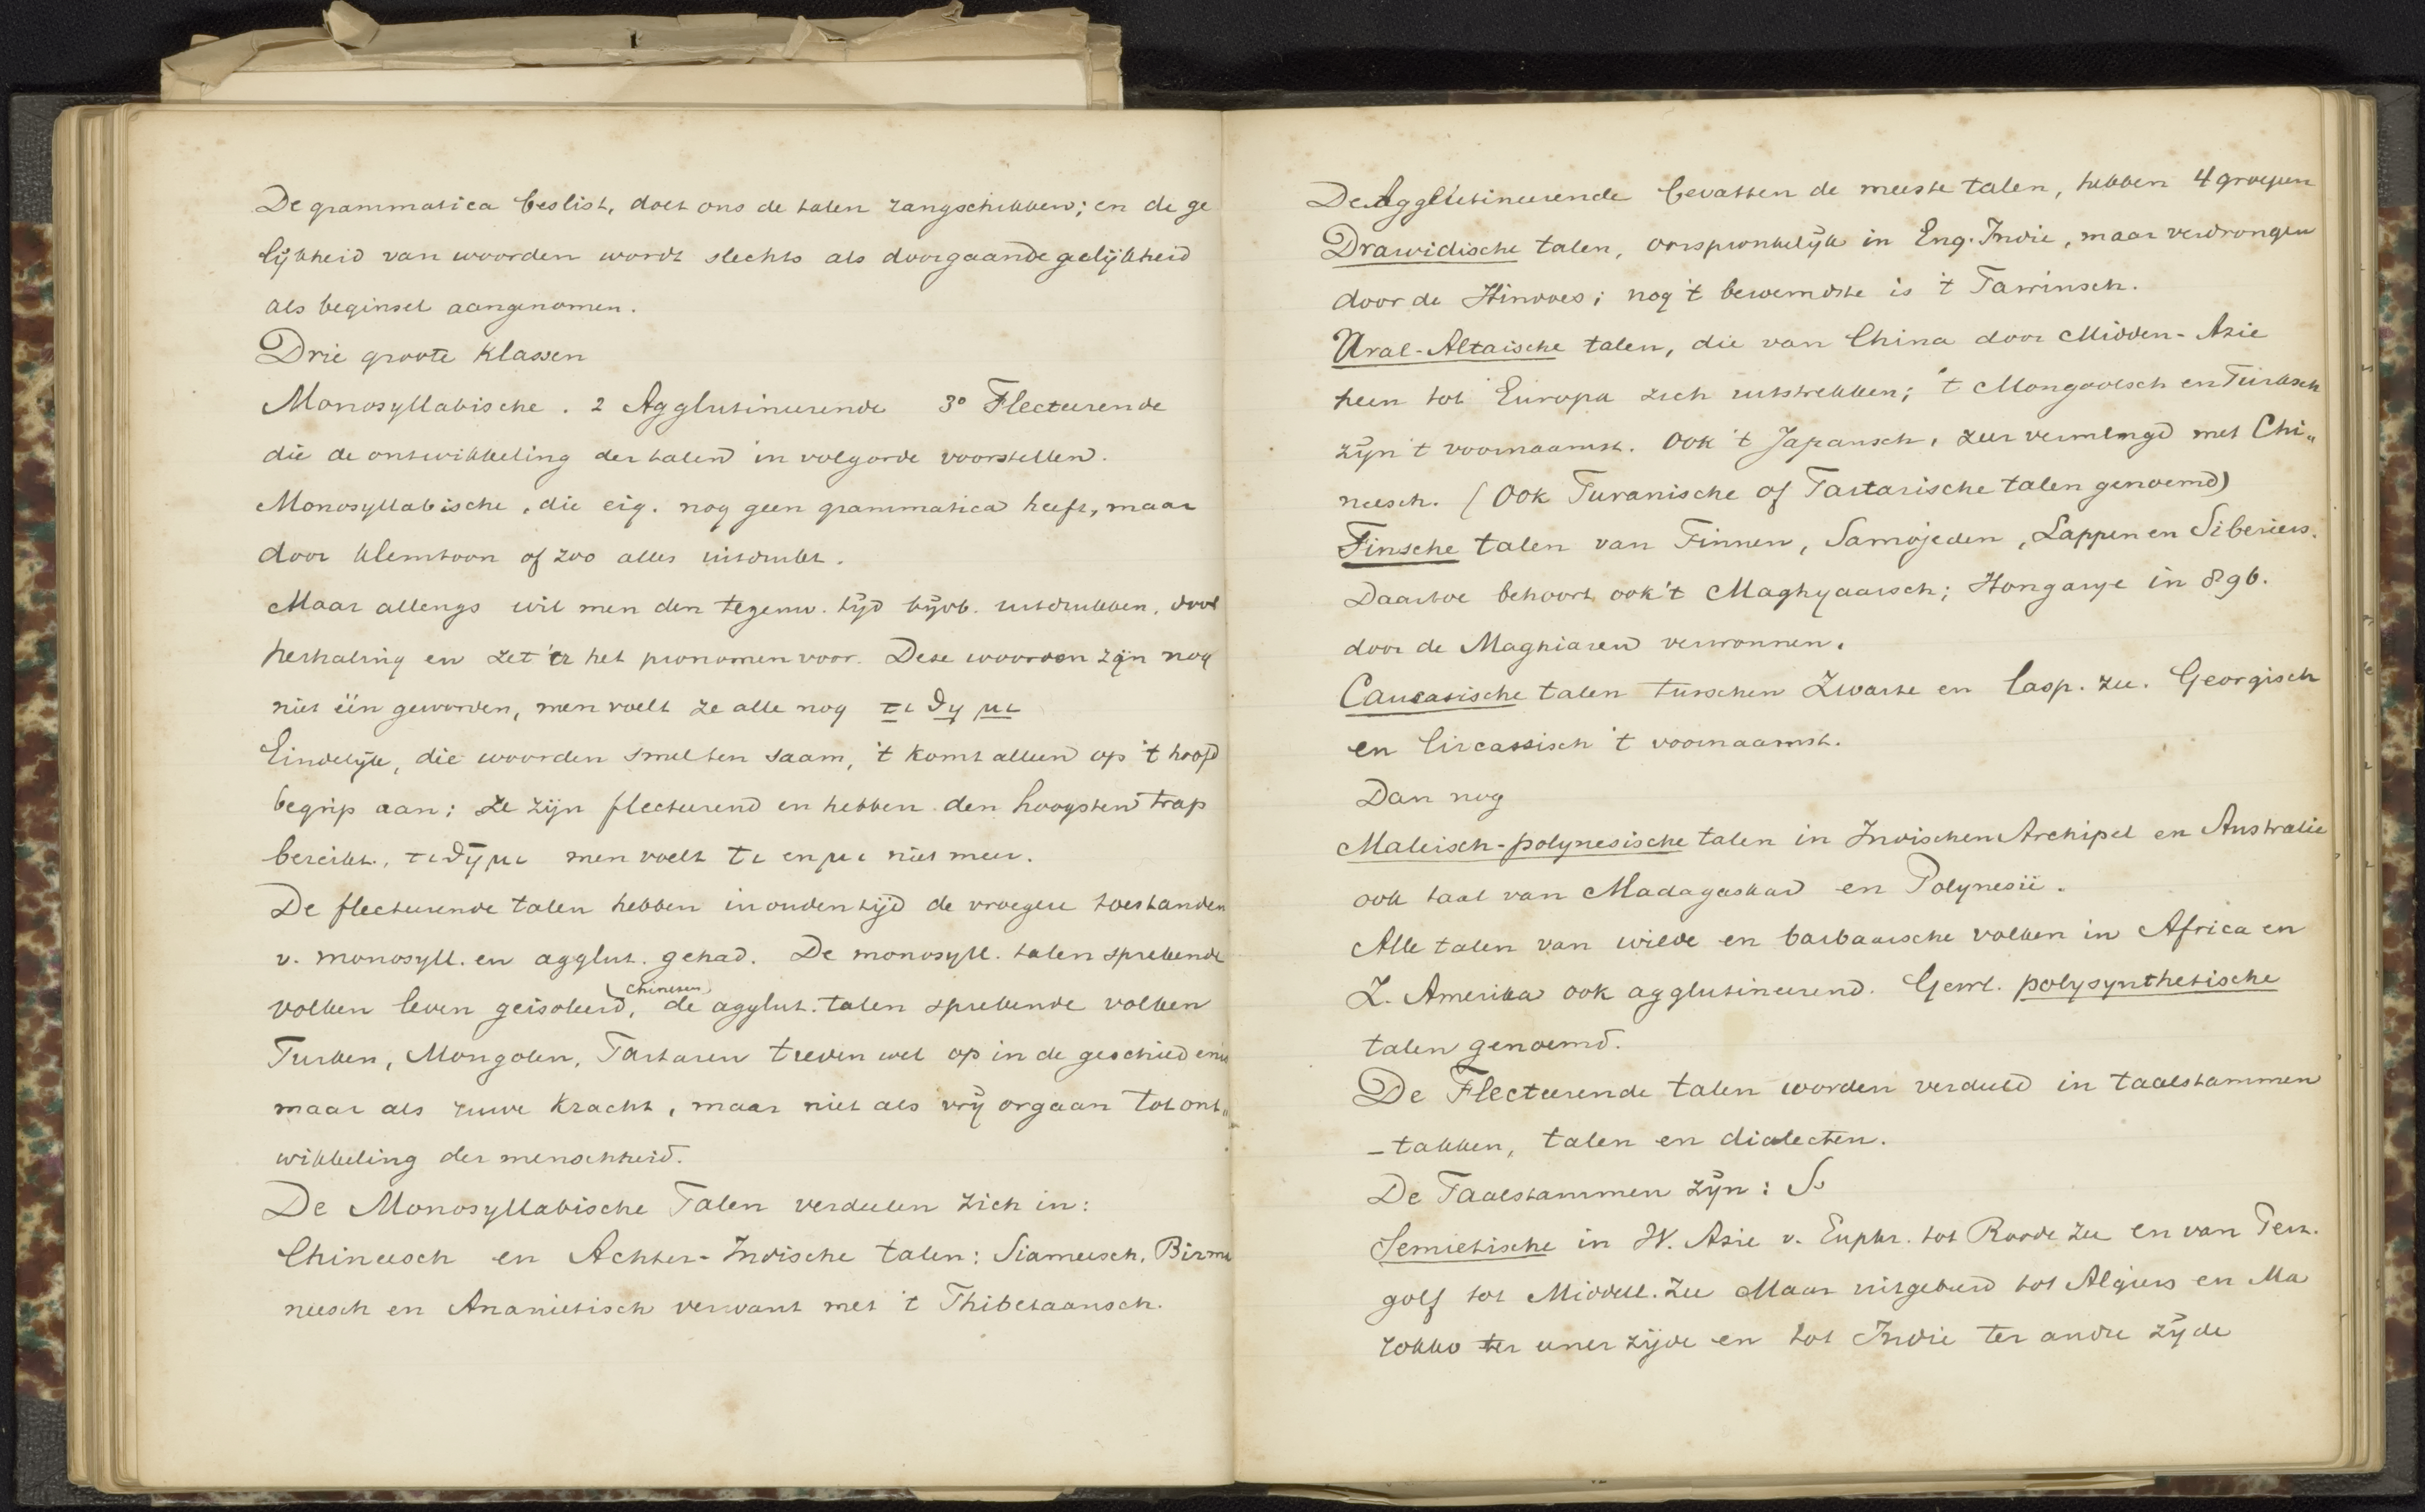 De grammatica beslist, doet ons de talen rangschikken; en de ge
lijkheid van woorden wordt slechts als doorgaande gelijkheid
als beginsel aangenomen.
Drie groote klassen
Monosyllabische. 2 Agglutineerende 3° Flecteerende
die de ontwikkeling der talen in volgorde voorstellen.
Monosyllabische, die eig. nog geen grammatica heeft, maar
door klemtoon of zoo alles uitdrukt.
Maar allengs wil men den tegenw. tijd bijvb. uitdrukken, door
herhaling en zet er het pronomen voor. Deze woorden zijn nog
niet één geworden, men voelt ze alle nog τι θη μι
Eindelijk, die woorden smelten saam, 't komt alleen op 't hoofd
begrip aan; ze zijn flecteerend en hebben den hoogsten trap
bereikt, τιθημι men voelt τι en μι niet meer.
De flecteerende talen hebben in ouden tijd de vroegere toestanden
v. monosyll. en agglut. gehad. De monosyll. talen sprekende
volken leven geisoleerd, (Chinesen) de agglut. talen sprekende volken
Turken, Mongolen, Tartaren treden wel op in de geschiedenis
maar als ruwe kracht, maar niet als vrij orgaan tot ont„
wikkeling der menschheid.
De Monosyllabische Talen verdeelen zich in:
Chineesch en Achter-Indische talen: Siameesch, Birma
neesch en Anamietisch verwant met 't Thibetaansch.
De Agglutineerende bevatten de meeste talen, hebben 4 groepen
Drawidische talen, oorspronkelijk in Eng. Indie, maar verdrongen
door de Hindoes; nog 't beroemdste is 't
Ural-Altaische talen, die van China door Midden-Azie
heen tot Europa zich uitstrekken; 't Mongoolsch en Turksch
zijn 't voornaamst. Ook 't Japansch, zeer vermengd met Chi„
neesch. (Ook Turanische of Tartarische talen genoemd)
Finsche talen van Finnen, Samojeden, Lappen en Siberiers.
Daartoe behoort ook 't Maghyaarsch; Hongarye in 896.
door de Maghiaren verwonnen.
Caucasische talen tusschen Zwarte en Casp. zee. Georgisch
en Circassisch 't voornaamst.
Dan nog
Maleisch-polynesische talen in Indischen Archipel en Australie
ook taal van Madagaskar en Polynesië.
Alle talen van wilde en barbaarsche volken in Africa en
Z. Amerika ook agglutineerend. Gewl. polysynthetische
talen genoemd.
De Flecteerende talen worden verdeeld in taalstammen
-takken, talen en dialecten.
De Taalstammen zijn: S
Semietische in W. Azie v. Euphr. tot Roode Zee en van Perz.
golf tot Middell. Zee Maar uitgebreid tot Algiers en Ma
rokko ter eener zijde en tot Indie ter andre zijde